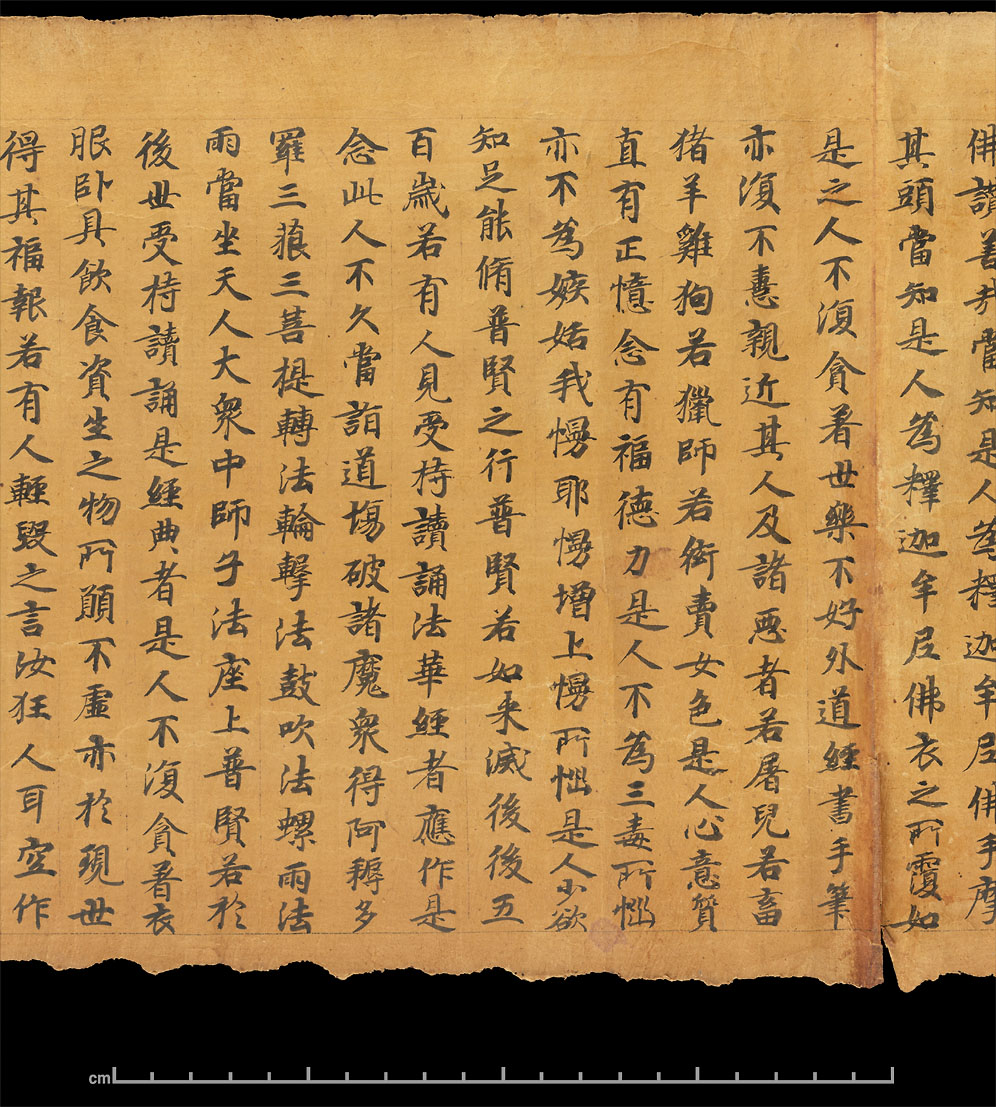 佛讃善哉當知是人為釋迦牟尼佛手摩
其頭當知是人為釋迦牟尼佛衣之所覆如
是之人不復貪著世樂不好外道經書手筆
亦復不憙親近其人及諸惡者若屠兒若畜
猪羊雞狗若獵師若衒賣女色是人心意質
直有正憶念有福德力是人不為三毒所惱
亦不為嫉妬我慢耶慢增上慢所惱是人少欲
知足能脩普賢之行普賢若如来滅後後五
百歲若有人見受持讀誦法華經者應作是
念此人不久當詣道場破諸魔衆得阿耨多
羅三藐三菩提轉法輪擊法鼓吹法螺雨法
雨當坐天人大衆中師子法座上普賢若於
後世受持讀誦是經典者是人不復貪著衣
服卧具飲食資生之物所願不虛亦於現世
得其福報若有人輕毀之言汝狂人耳空作
cm